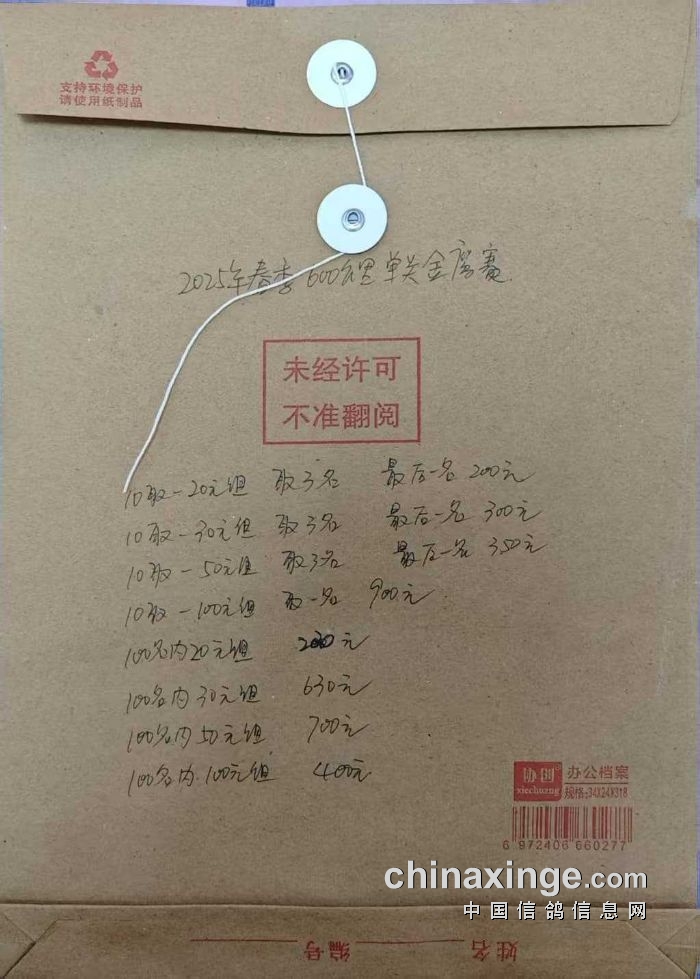 支持环境保护
请使用纸制品
2025年春季600公里单关金席赛
未经许可
不准翻阅
10取一20元组 取3名 最后一名 200元
10取一30元组 取3名 最后一名 300元
10取一50元组 取3名 最后一名 350元
10取一100元组 取一名 900元
100名内20元组 元
100名内30元组 630元
100名内50元组 700元
100名内100元组 400元
协创
xiechuang
办公档案
规格:34X24X318
6 972406 660277
chinaxinge.com
中国信鸽信息网
姓名 编号